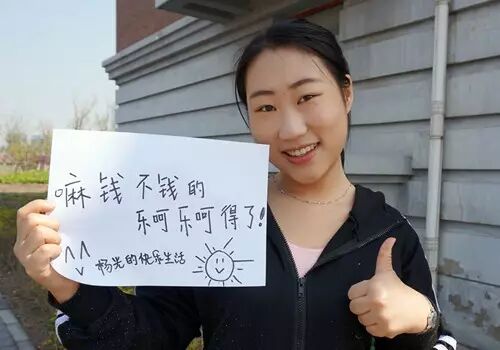 嘛钱不钱的
乐呵乐呵得了!
杨光的快乐生活